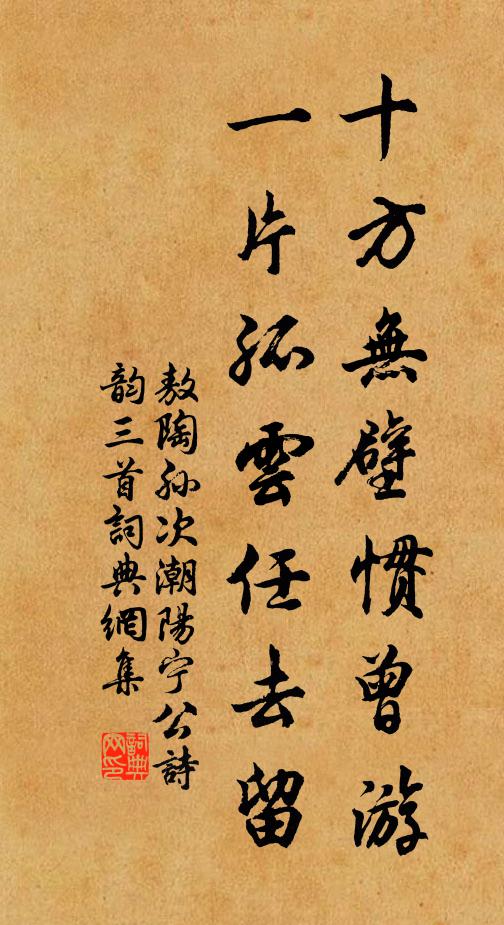 十方無壁慣曾游
一片孤雲任去留
敖陶孙次潮陽宁公詩
韵三首詞典網集
詞典
网印